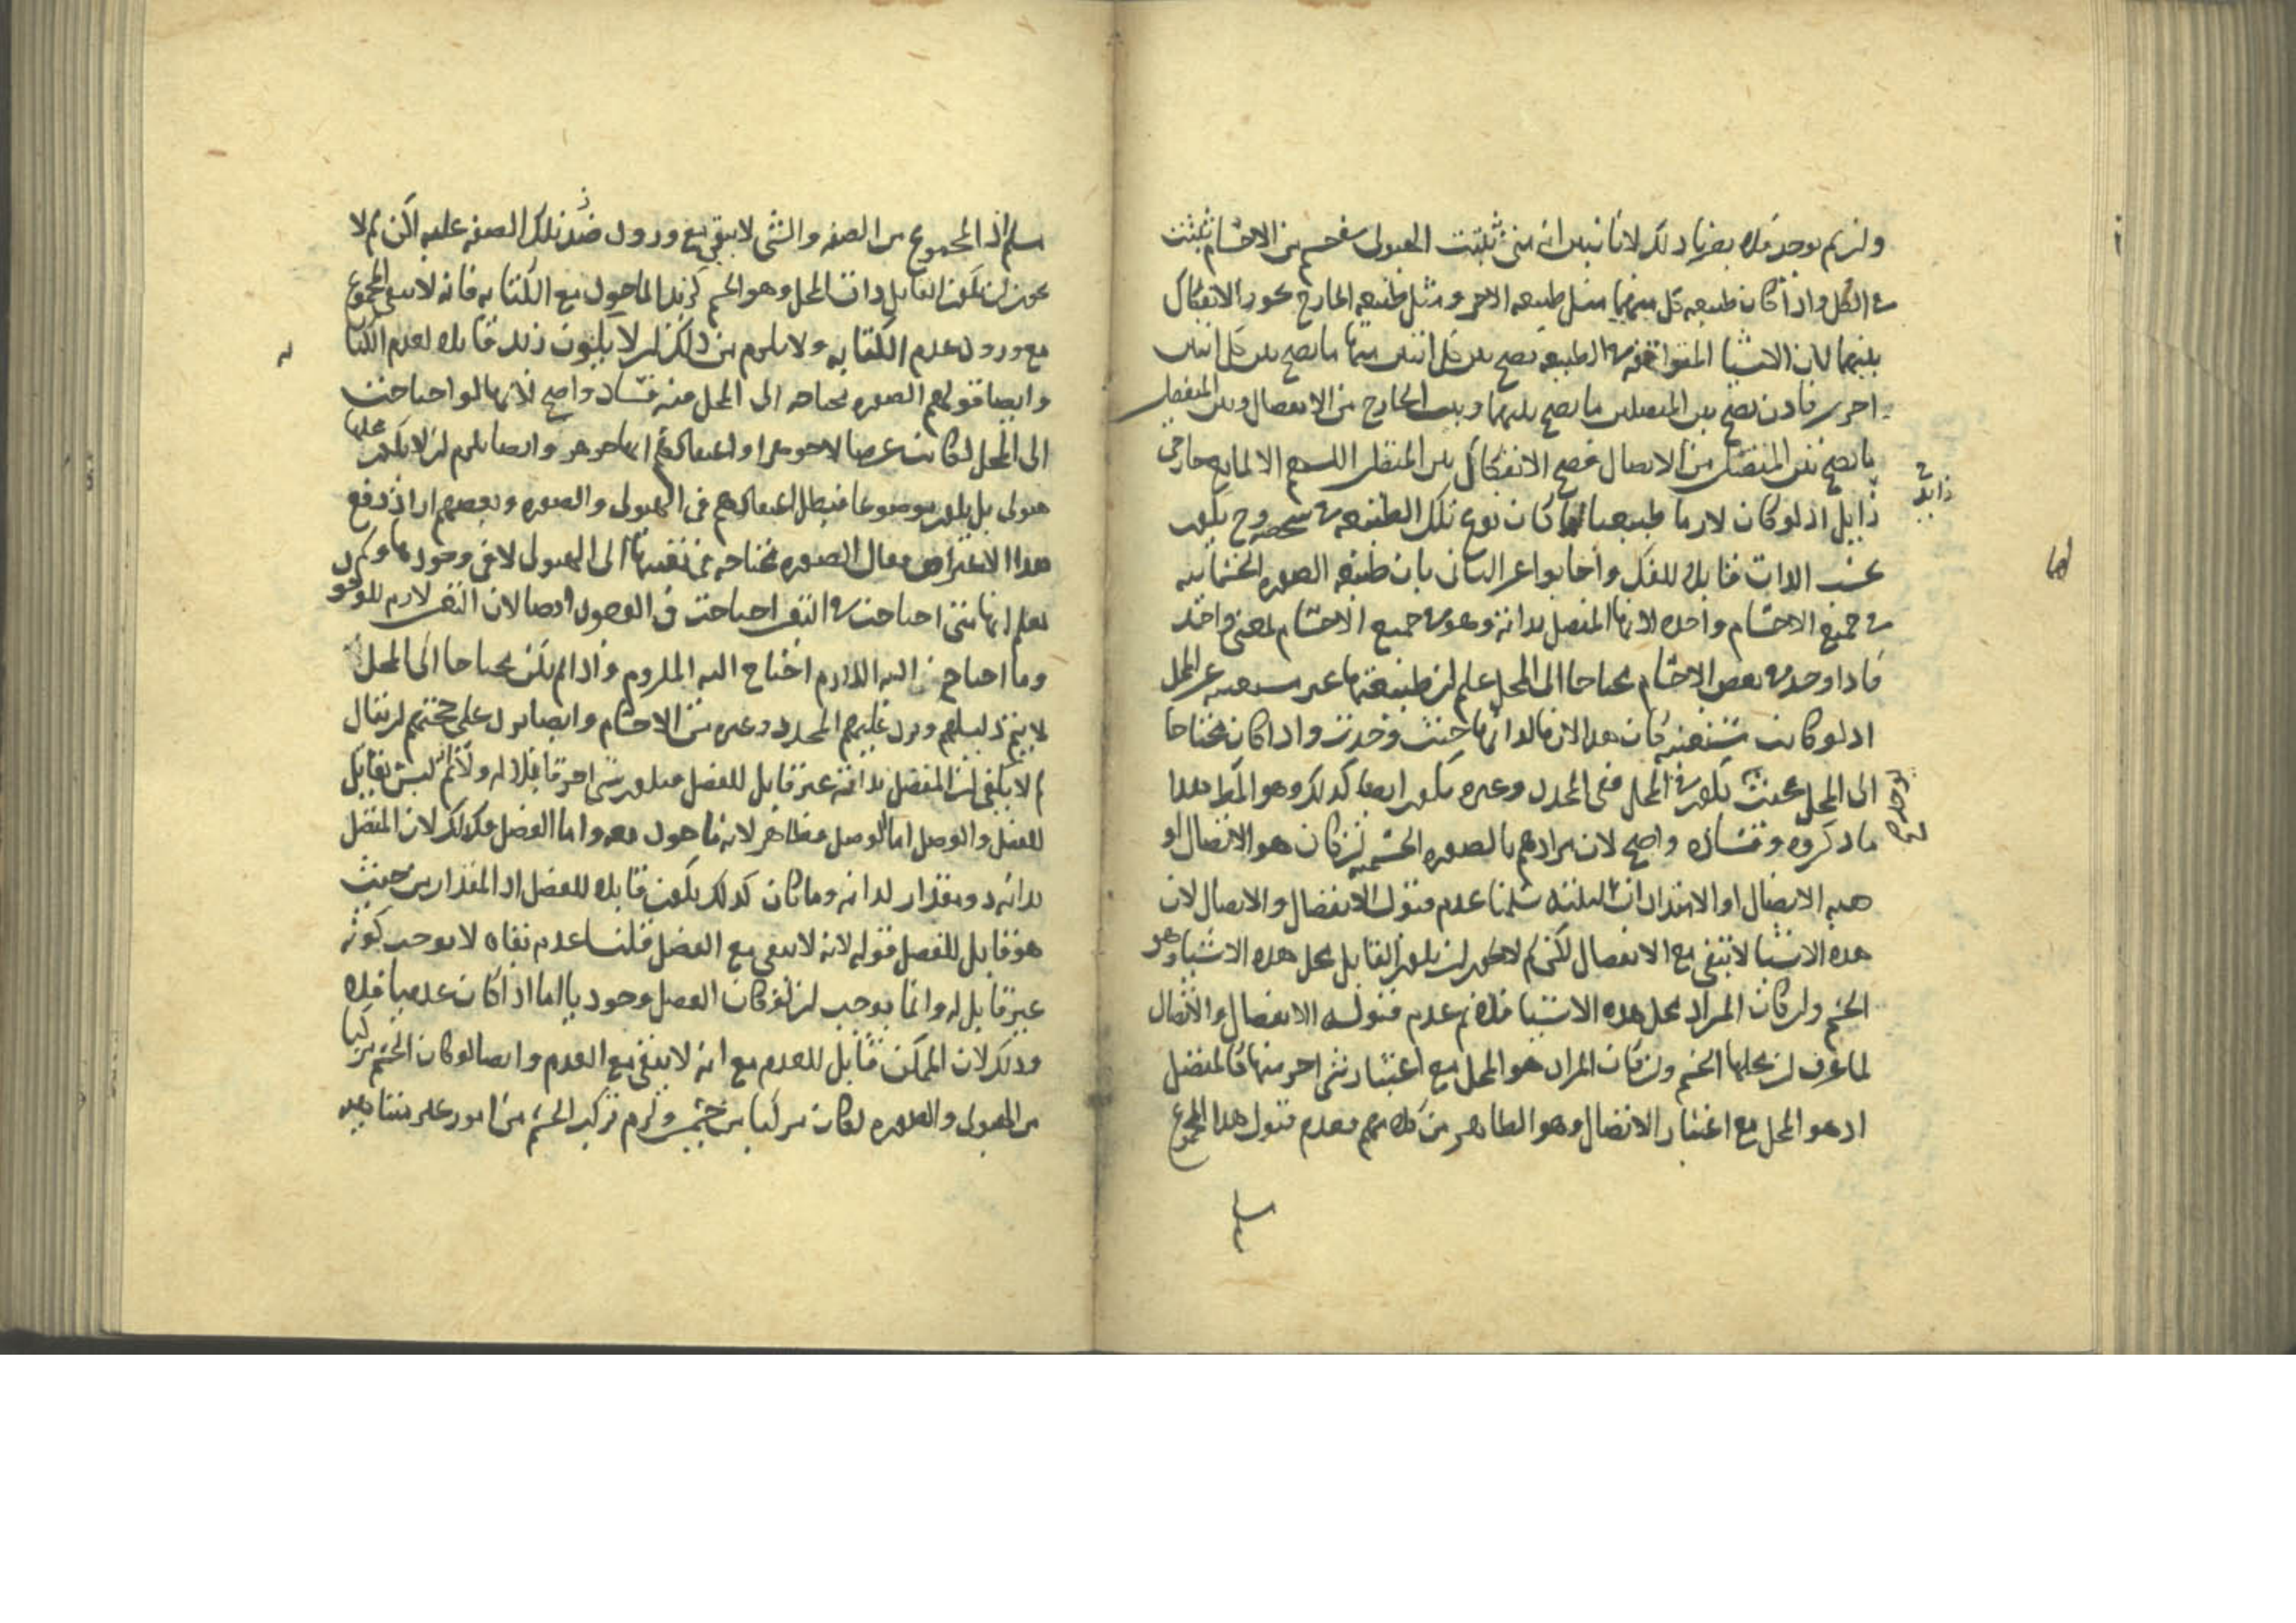 ولزم يوجد فلا يضرنا ذلك لانا نبين انه متى ثبتت الهيولى في جسم من الاجسام ثبتت
في الكل واذا كان طبيعه كل منهما مثل طبيعه الاخر ومثل طبيعه الخارج يجوز الانفكاك
بينهما لان الاشيا المتوافقه في الطبيعه يصح بين كل اثنين منها ما يصح بين كل اثنين
اخرين فاذن يصح بين المتصلين ما يصح بينهما وبين الخارج من الانفصال وبين المنفصلين
ما يصح بين المتصلين من الاتصال فصح الانفكاك بين المتصلين اللهم الا لمانع خارجي
زايل اذ لو كان لازما طبيعيا لها كان نوع تلك الطبيعه في شخصه وح يكون
بحسب الذات قابلا للفك واجابوا عن الثاني بان طبيعه الصوره الجسمانيه
في جميع الاجسام واحده لانها المتصل بذاته وهو في جميع الاجسام بمعنى واحد
فاذا وجد في بعض الاجسام محتاجا الى المحل علم ان طبيعتها غير مستغنيه عن المحل
اذ لو كانت مستغنيه كان هذا لازما لذاتها حيث وجدت واذا كان محتاجا
الى المحل بحيث يكون في المحل ففي المحدد وغيره يكون ايضا كذلك وهو المط هذا
ما ذكروه وفساده واضح لان مرادهم بالصوره الجسميه ان كان هو الاتصال او
هيه الاتصال او الامتدادات الثلثه سلمنا عدم قبول الانفصال والاتصال لان
هذه الاشيا لا تبقى مع الانفصال لكن لم لا يجوز ان يكون القابل محل هذه الاشيا وهو
الجسم وان كان المراد محل هذه الاشيا فلا نم عدم قبوله الانفصال والاتصال
لما عرف ان محلها الجسم وان كان المراد هو المحل مع اعتبار شى اخر منها كالمتصل
اذ هو المحل مع اعتبار الاتصال وهو الظاهر من كلامهم فعدم قبول هذا المجموع
مسلم اذ المجموع من الصفه والشى لا يبقى مع ورود ضد تلك الصفه عليه لكن لم لا
يجوز ان يكون القابل ذات المحل وهو الجسم كزيد الماخوذ مع الكتابه فانه لا يبقى المجموع
مع ورود عدم الكتابه ولا يلزم من ذلك ان لا يكون زيد قابلا لعدم الكتا
به
وايضا قولهم الصوره محتاجه الى المحل فيه فساد واضح لانها لو احتاجت
الى المحل لكانت عرضا لا جوهرا واعتقادهم انها جوهر وايضا يلزم ان لا يكون محلها
هيولى بل يكون موضوعا فيبطل اعتقادهم في الهيولى والصوره وبعضهم اراد دفع
هذا الاعتراض فقال الصوره محتاجه في تعينها الى الهيولى لا في وجودها ولم
يعلم انها متى احتاجت في التعين احتاجت في الوجود ايضا لان التعين لازم للوجو
وما احتاج اليه اللازم احتاج اليه الملزوم واذا لم يكن محتاجا الى المحل
لا يتم دليلهم ويرد عليهم المحدد وغيره من الاجسام وايضا يرد على حجتهم ان يقال
لم لا يكفي ان المتصل بذاته غير قابل للفصل فيكون شى اخر قابلا له ولا نم انه ليس بقابل
للفصل والوصل اما الوصل فظاهر لانه ماخوذ معه واما الفصل فكذلك لان المتصل
بذاته ذو مقدار لذاته وما كان كذلك يكون قابلا للفصل اذ المقدار من حيث
هو قابل للفصل قوله لانه لا يبقى مع الفصل قلنا عدم بقاه لا يوجب كونه
غير قابل له وانما يوجب ان لو كان الفصل وجوديا اما اذا كان عدميا فلا
وذلك لان الممكن قابل للعدم مع انه لا يبقى مع العدم وايضا لو كان الجسم مركبا
من الهيولى والصوره لكان مركبا من جسمين ولزم تركب الجسم من امور غير متناهيه